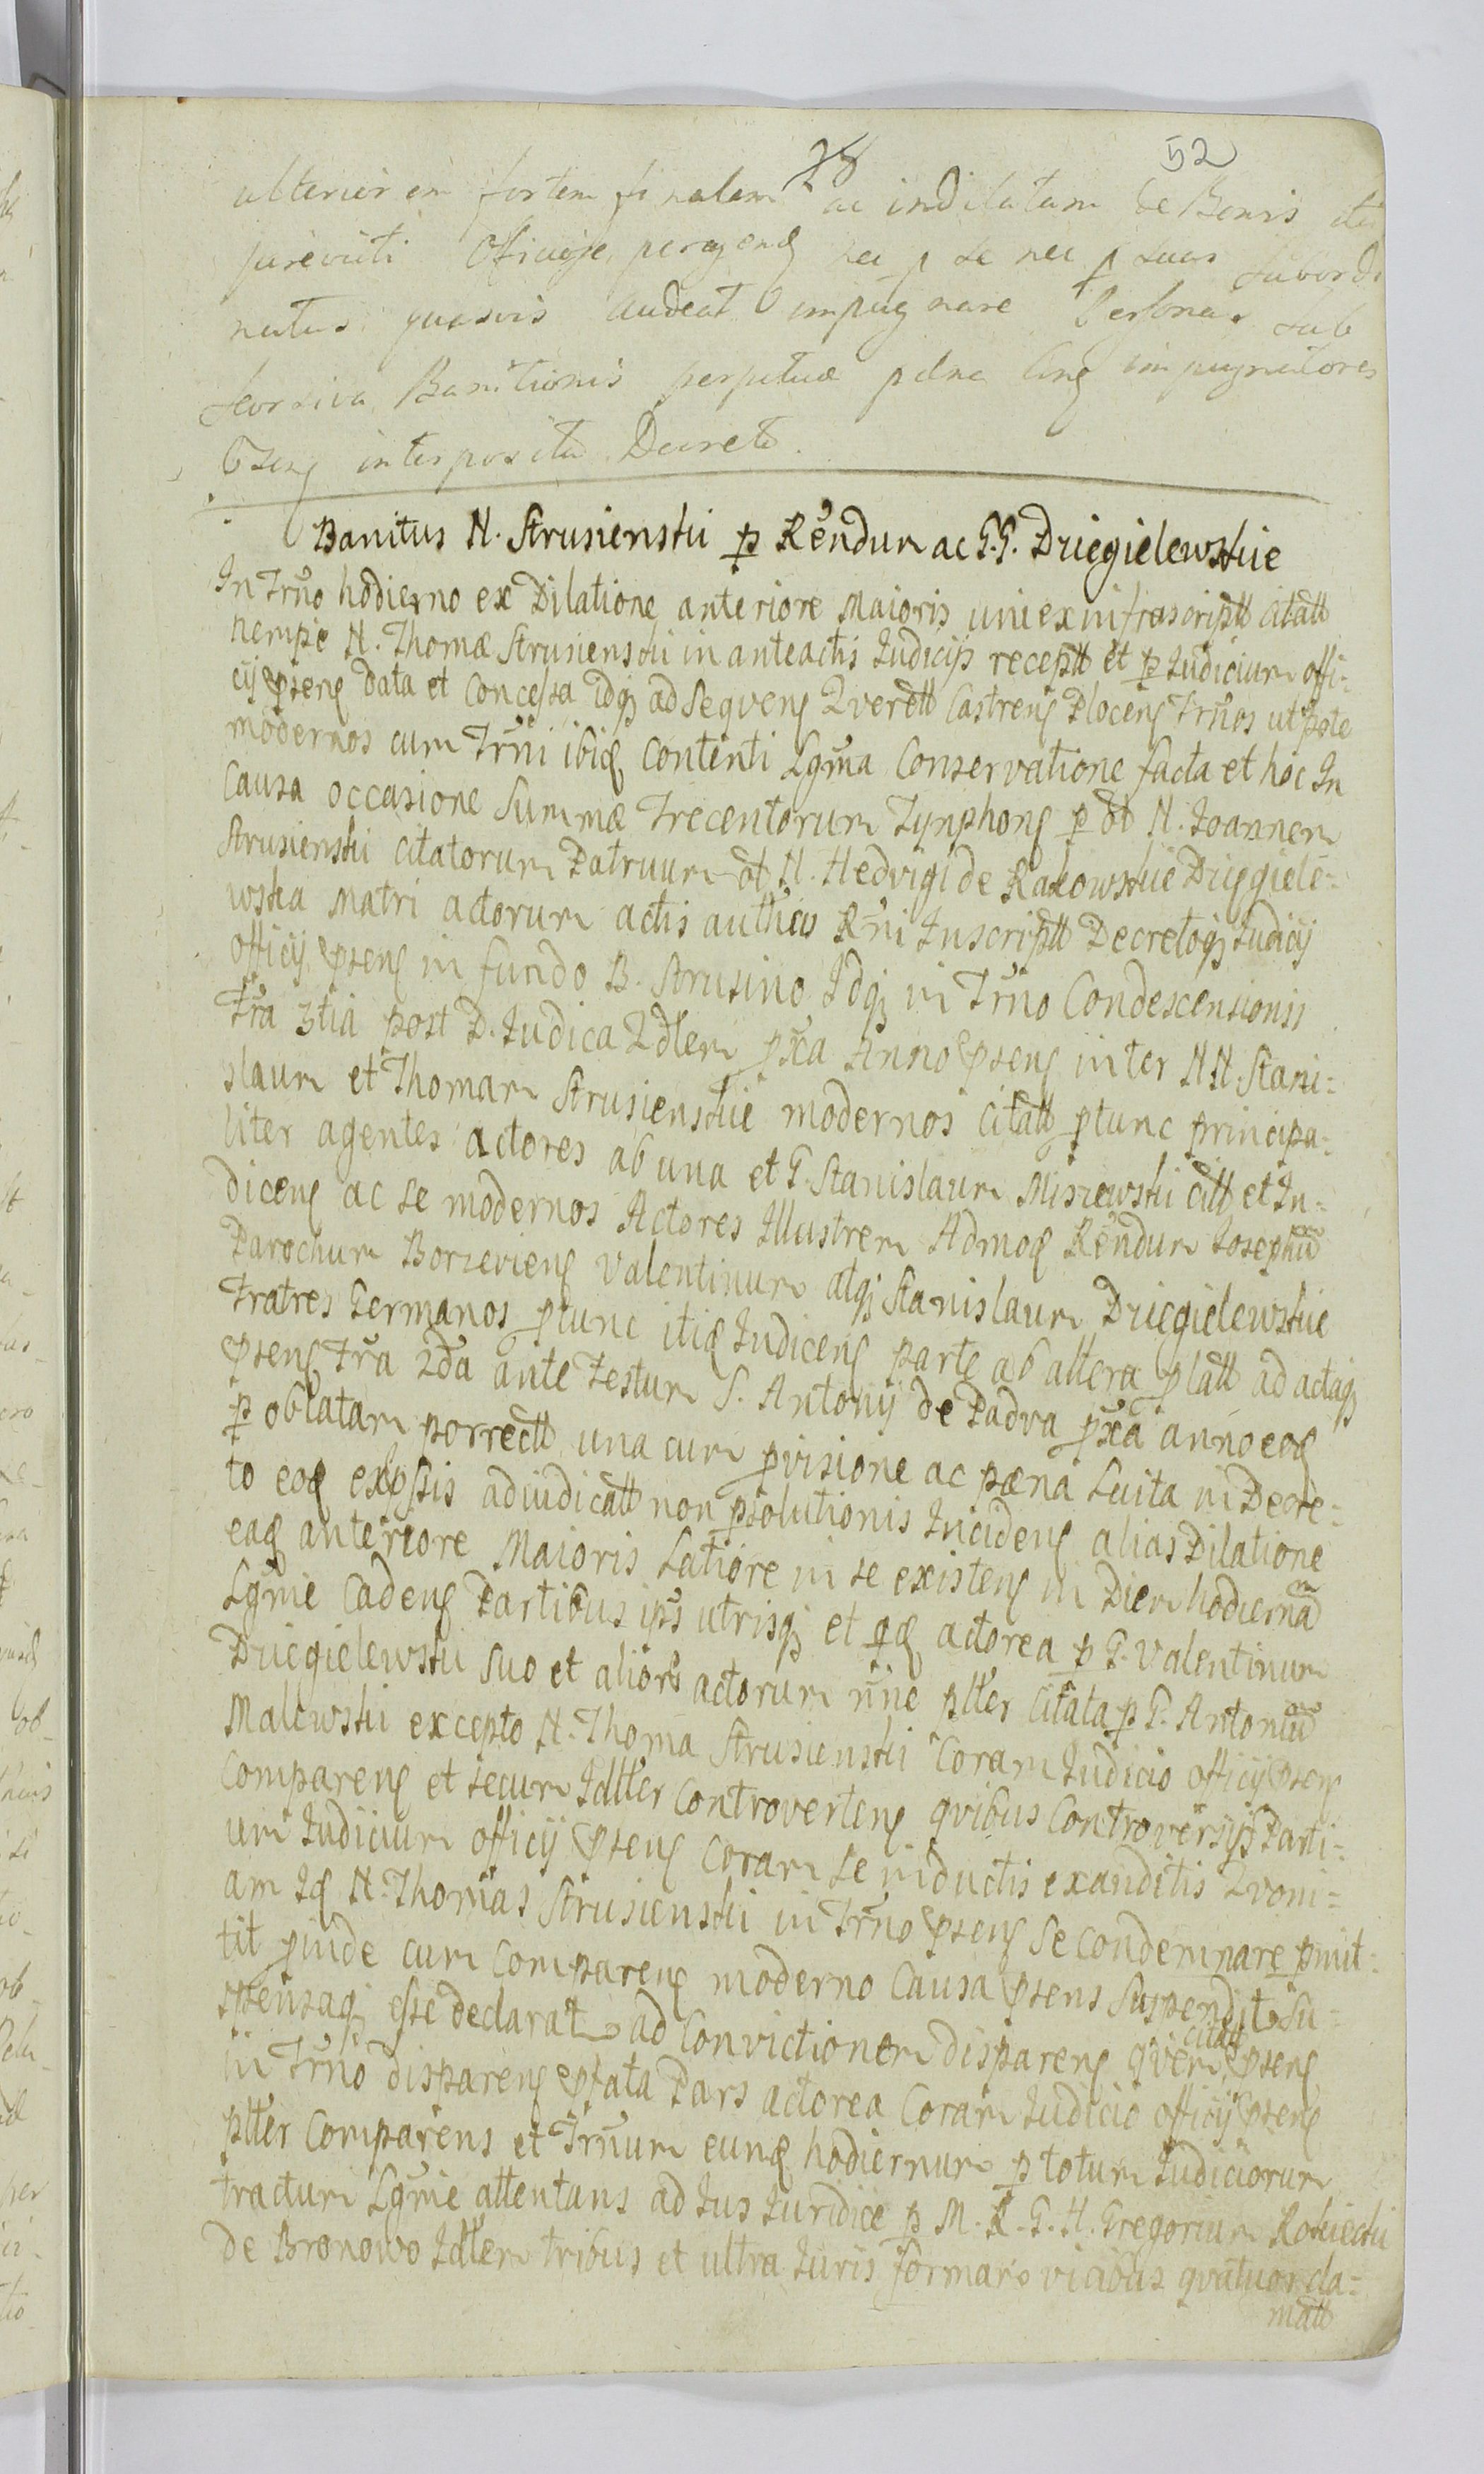 78 52
ulteriorem fortem finalem ac indilatam de Bonis
jurevicti Officiose peragend nec p se nec p suas subordi
natas quasvis audeat impugnare Personas sub
Banitionis perpetuæ pœna impugnatores
interposita Decreto.
Banitus N. Strusienski p Rendum ac G.G. Dziegielewskie
In Trno hodierno ex Dilatione anteriore Maioris uni ex infrascriptt citatt
nempe N. Thomæ Strusienski in anteactis Judicijs receptt et p Judicium offi-
cij psens data et Concessa idq ad Sequens Qverett Castrens Plocens Trnos utpote
modernos cum Trni ibid Contenti Lgma Conservatione facta et hoc In
Causa occasione Summæ Trecentorum Tynphons p olt N. Joannem
Strusienski Citatorum Patruum olt N. Hedvigi de Rakowskie Dziegiele=
wska Matri actorum actis authcis Rni Inscriptt Decretoq Judicij
officij psens in fundo B. Strusino Idq in Trno Condescensionis
Fra 3tia post D. Judica Qdlem pxa Anno psens inter NN Stani=
slaum et Thomam Strusienskie modernos Citatt ptunc principa=
liter agentes actores ab una et G. Stanislaum Miszewski citt et In=
dicens ac se modernos Actores Illustrem Admod Rendum Josephum
Parochum Borzeviens Valentinum atq Stanislaum Dziegielewskie
Fratres Germanos ptunc itid Indicens parte ab altera platt ad actaq
psens Fra 2da ante Festum S. Antonij de Padva pxa anno eod
p oblatam porrectt una cum pvisione ac pæna Luita in Decre=
to eod expssis adiudicatt non psolutionis Incidens alias Dilatione
ead anteriore Maioris Latiore in se existens in Diem hodiernam
Lgme Cadens Partibus ipss utrisq et qd actorea p G. Valentinum
Dziegielewski suo et aliors actorum nne pller Citata p G. Antonium
Malewski excepto N. Thoma Strusienski Coram Judicio officij psens
Comparens et secum Idller Controvertens qvibus Controversijs Parti=
um Judicium officij psens Coram se inductis exauditis Qvoni=
am Id N. Thomas Strusienski in Trno psens se condemnare pmit=
tit pinde cum Comparens moderno Causa psens Suspendit Su=
spensaq esse declarat ad Convictionem disparens qvem citatt psens
in Trno disparens pfata Pars actorea Coram Judicio officij psens
pller Comparens et Trnum eund hodiernum p totum Judiciorum
tractum Lgme attentans ad Jus Juridice p M. R. G. N. Gregorium Rokicki
de Bronowo Idlem tribus et ultra Juris formam vicibus qvatuor cla=
matt